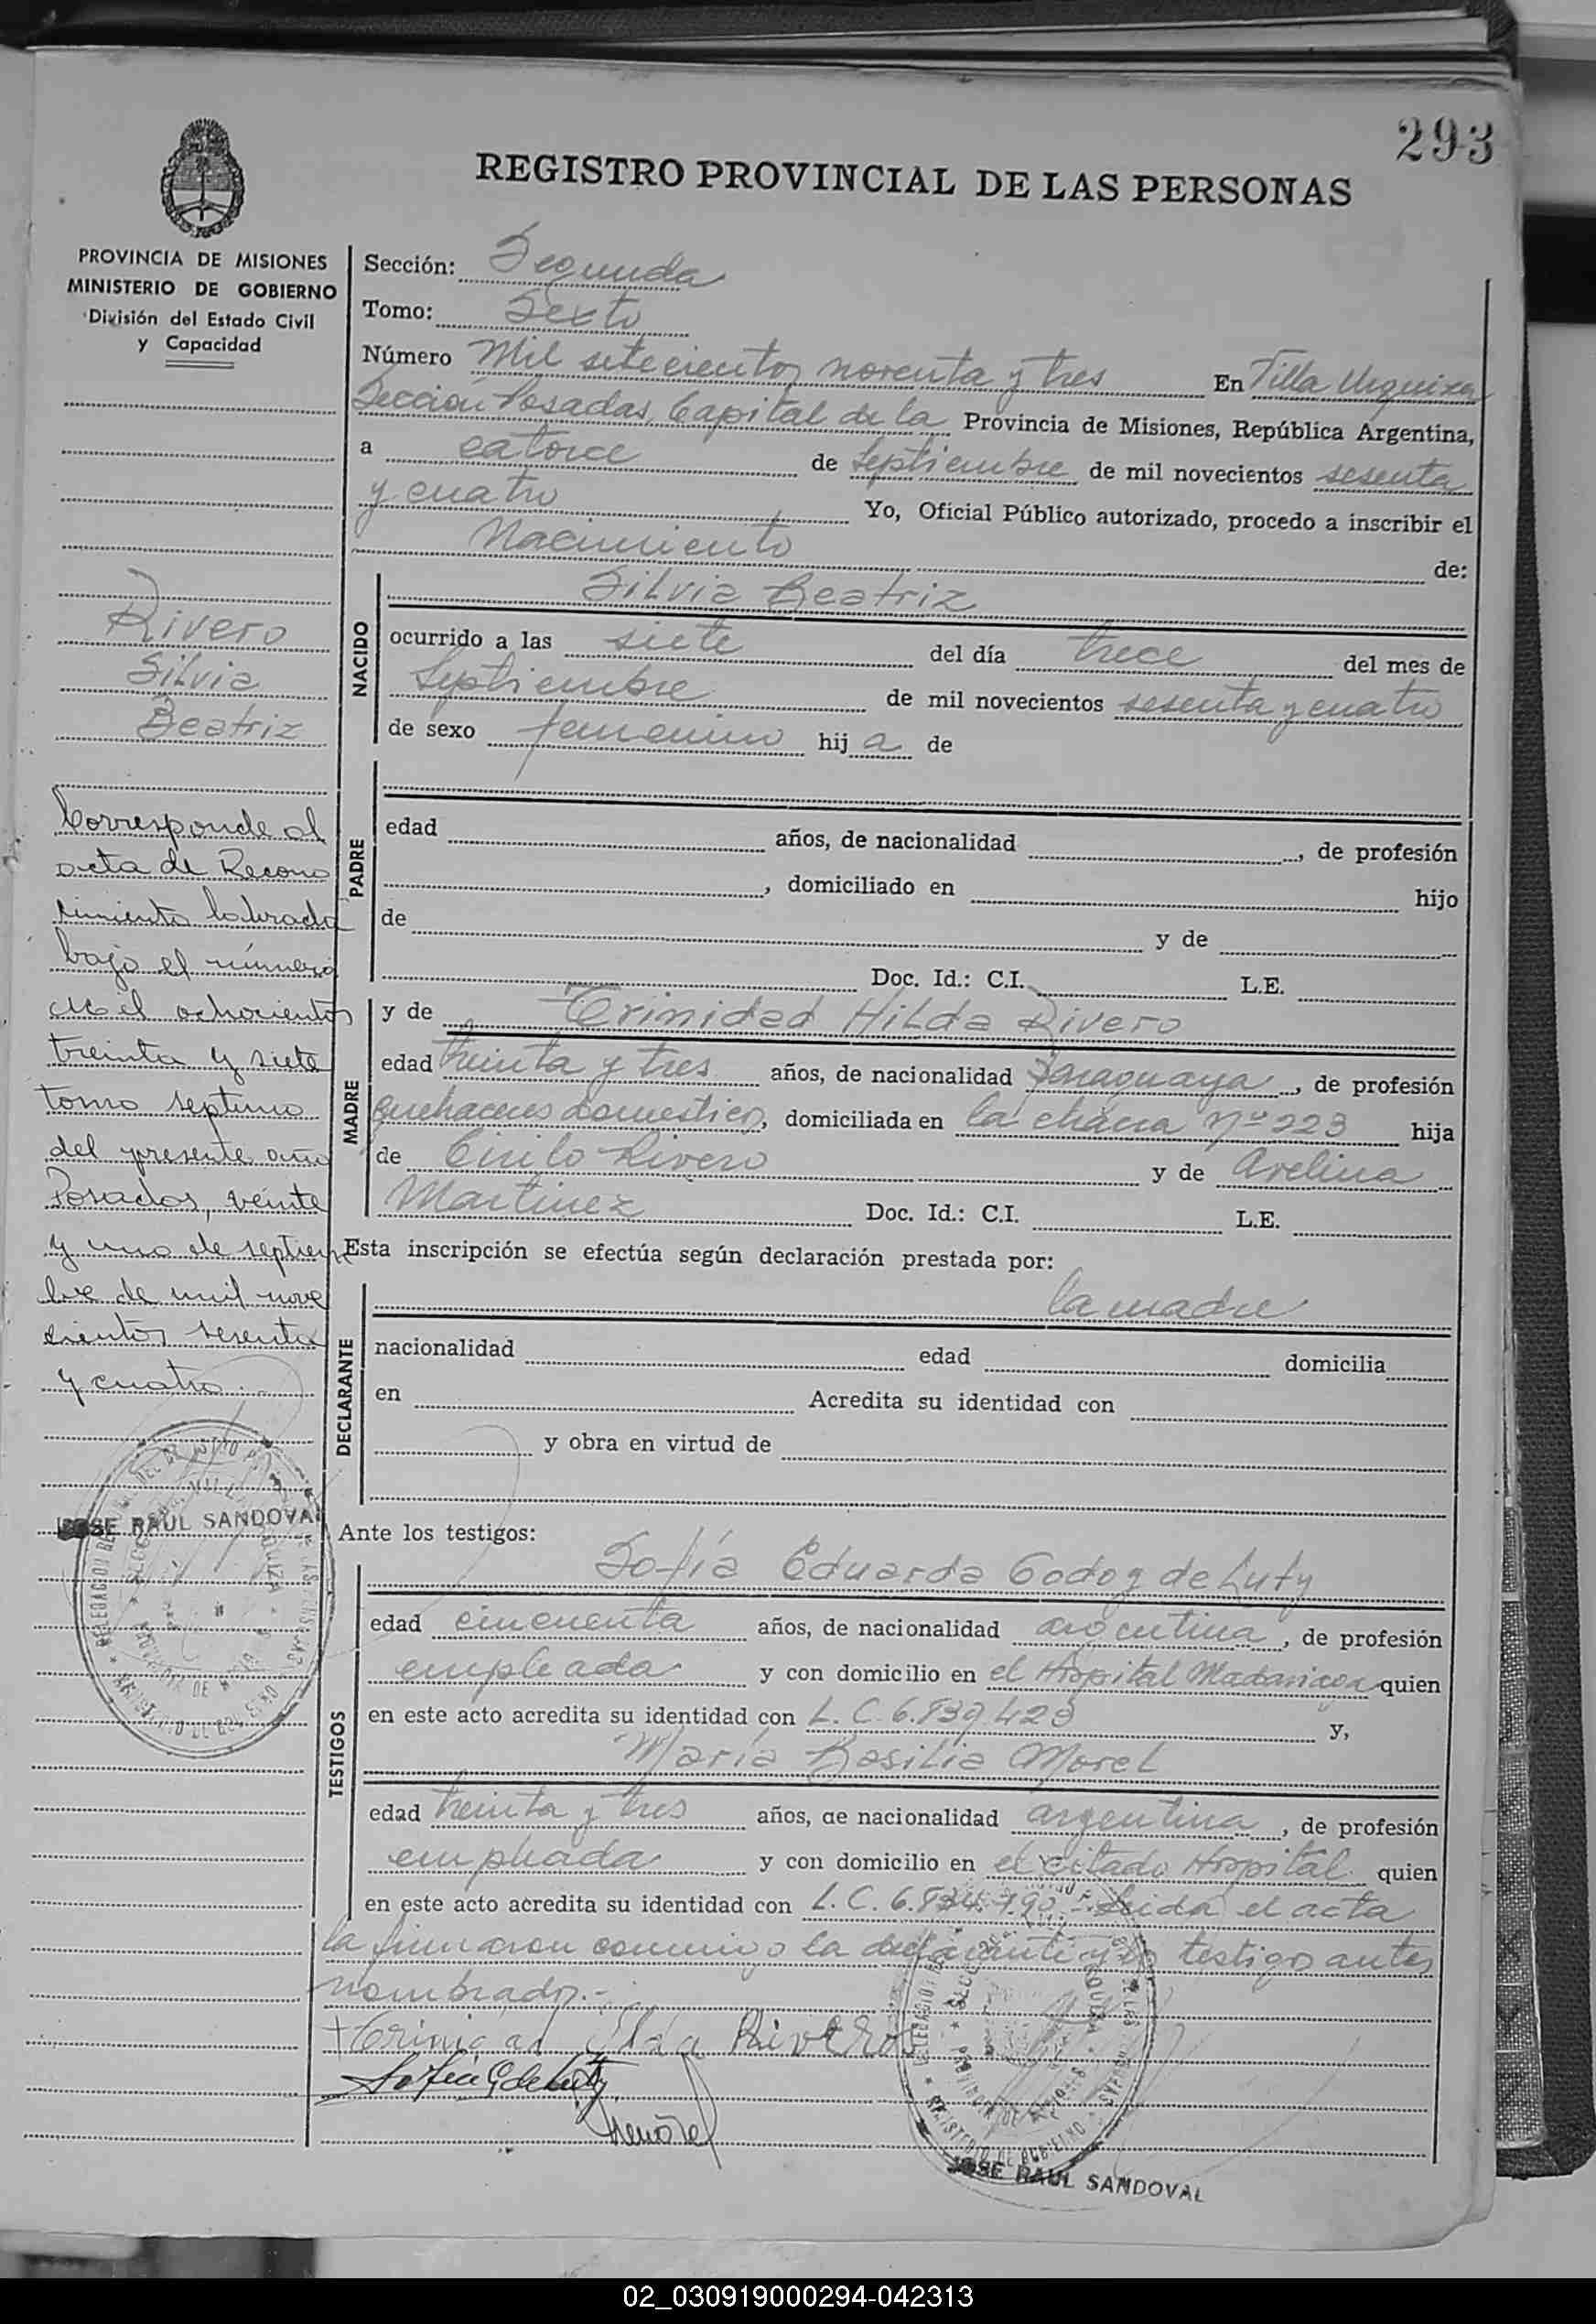 293
REGISTRO PROVINCIAL DE LAS PERSONAS
PROVINCIA DE MISIONES
MINISTERIO DE GOBIERNO
División del Estado Civil
y Capacidad
Rivero
Silvia
Beatriz
Corresponde al
acta de Recono
cimiento labrada
bajo el número
Mil ochocientos
treinta y siete
tomo septimo
del presente año
Posadas, veinte
y uno de septiem
bre de mil nove
cientos sesenta
y cuatro.
JOSE RAUL SANDOVAL
Sección: Segunda
Tomo: Sexto
Número Mil setecientos noventa y tres En Villa Urquiza
Sección Posadas, Capital de la Provincia de Misiones, República Argentina,
a catorce de Septiembre de mil novecientos sesenta
y cuatro Yo, Oficial Público autorizado, procedo a inscribir el
Nacimiento de:
NACIDO
Silvia Beatriz
ocurrido a las siete del día trece del mes de
Septiembre de mil novecientos sesenta y cuatro
de sexo femenino hij a de
PADRE
edad años, de nacionalidad , de profesión
, domiciliado en hijo
de y de
Doc. Id.: C.I. L.E.
MADRE
y de Trinidad Hilda Rivero
edad treinta y tres años, de nacionalidad Paraguaya, de profesión
quehaceres domesticos, domiciliada en la chacra nº 223 hija
de Cirilo Rivero y de Avelina
Martinez Doc. Id.: C.I. L.E.
Esta inscripción se efectúa según declaración prestada por:
DECLARANTE
la madre
nacionalidad edad domicilia
en Acredita su identidad con
y obra en virtud de
Ante los testigos:
TESTIGOS
Sofía Eduarda Godoy de Luty
edad cincuenta años, de nacionalidad argentina, de profesión
empleada y con domicilio en el Hospital Madariaga quien
en este acto acredita su identidad con L.C. 6.839.423 y,
María Basilia Morel
edad treinta y tres años, de nacionalidad argentina, de profesión
empleada y con domicilio en el citado Hospital quien
en este acto acredita su identidad con L.C. 6. Leida el acta
la firmaron conmigo la declarante y los testigos antes
nombrados.-
Sofia G de Luty
JOSE RAUL SANDOVAL
02_030919000294-042313